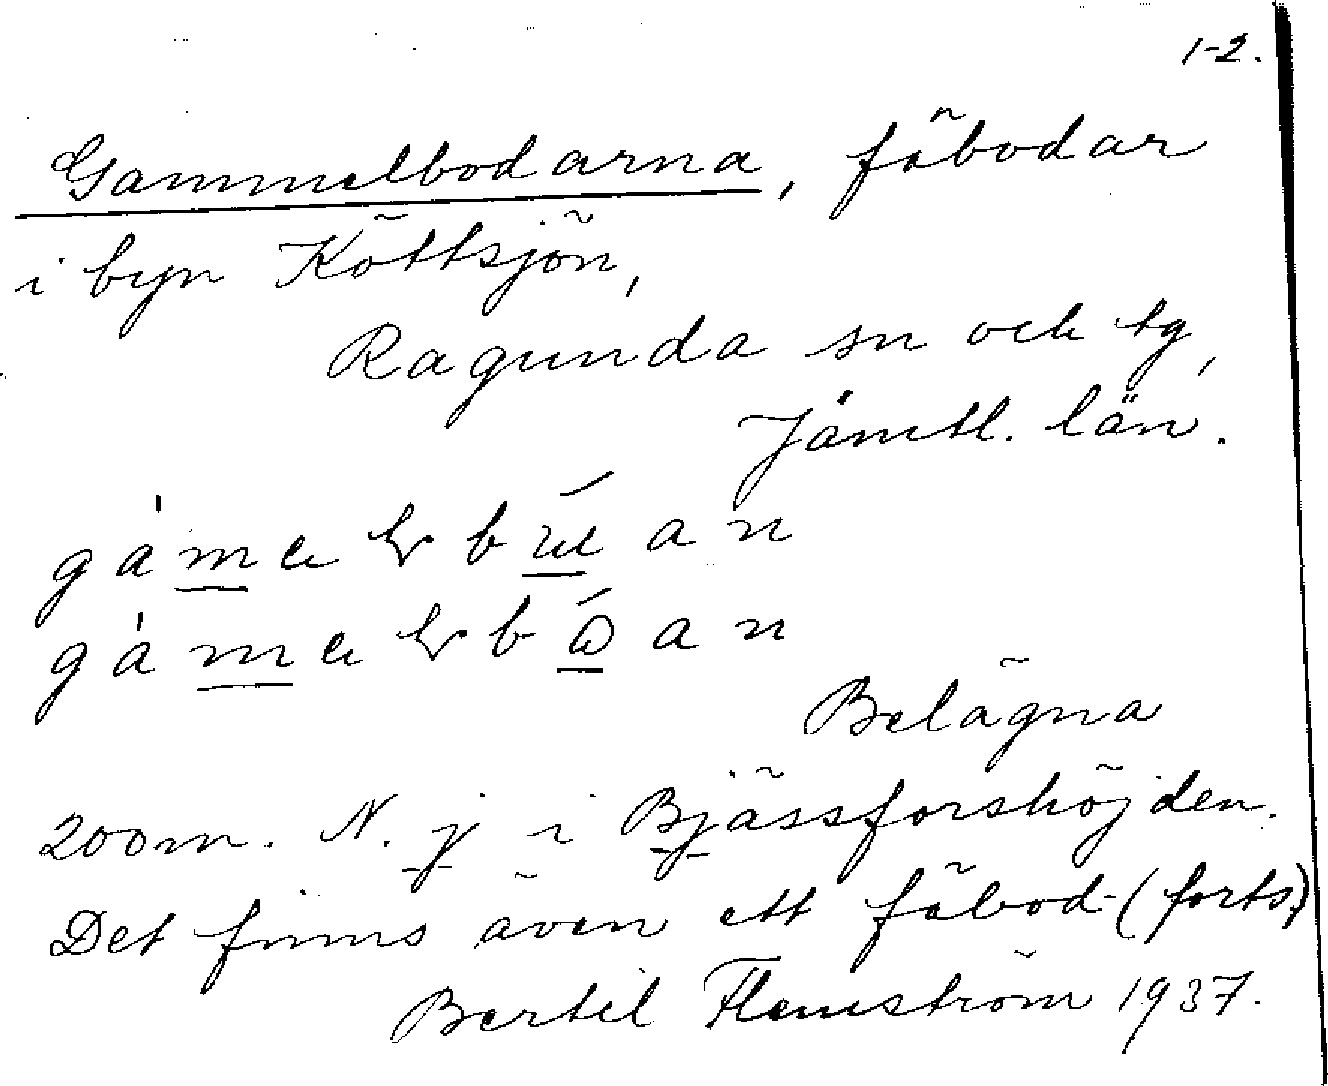 1-2.
Gammelbodarna, fäbodar
i byn Köttsjön,
Ragunda sn och tg,
Jämtl. län.
Belägna
200 m. N. j i Bjässforshöjden.
Det finns även ett fäbod- (forts)
Bertil Flemström 1937.